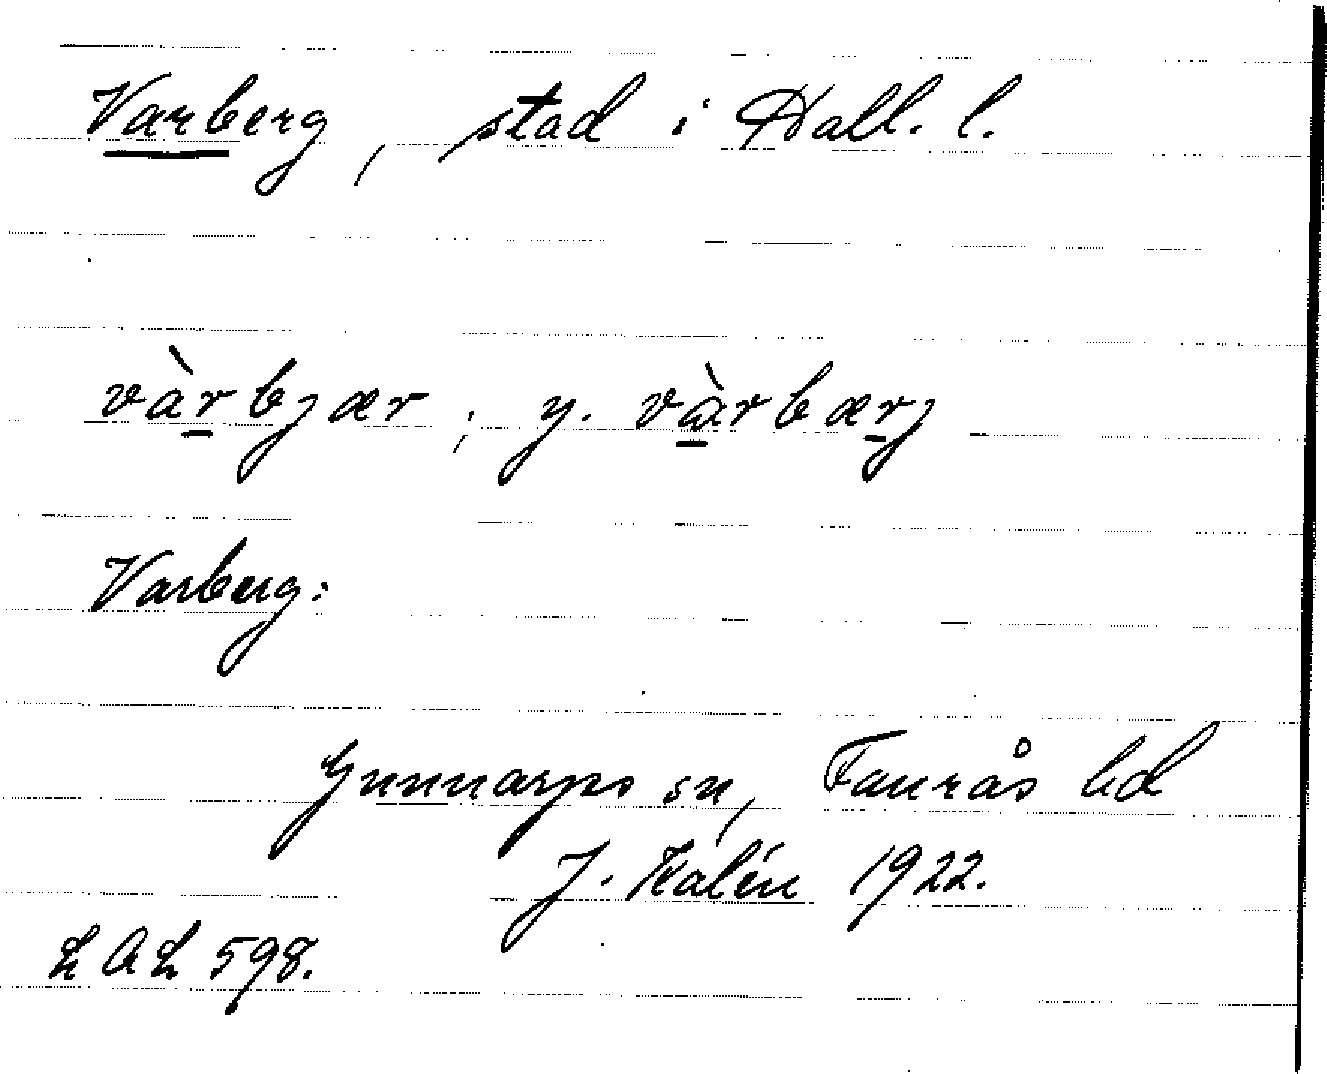 Varberg, stad i Hall. l.
vàrbjær; y. vàrbærj
Varberg:
Gunnarps sn, Faurås hd
J. Kalén 1922.
LAL 598.